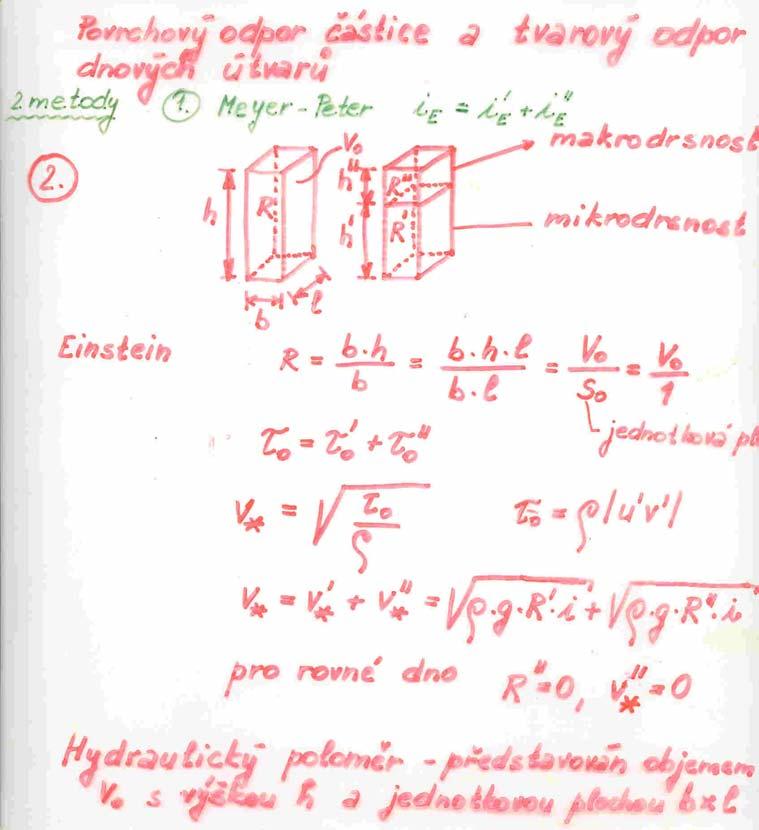 Povrchový odpor částice a tvarový odpor
dnových útvarů
2 metody 1. Meyer-Peter i_E = i_E' + i_E''
2.
V₀ makrodrsnost
h R h'' R''
h' R' mikrodrsnost
b l
Einstein R = b·h/b = b·h·l/b·l = V₀/S₀ = V₀/1
jednotková pl
τ₀ = τ₀' + τ₀''
v_* = √(τ₀/ρ) τ₀ = ρ|u'v'|
v_* = v_*' + v_*'' = √(ρ·g·R'·i) + √(ρ·g·R''·i)
pro rovné dno R'' = 0, v_*'' = 0
Hydraulický poloměr - představován objemem
V₀ s výškou h a jednotkovou plochou b×l